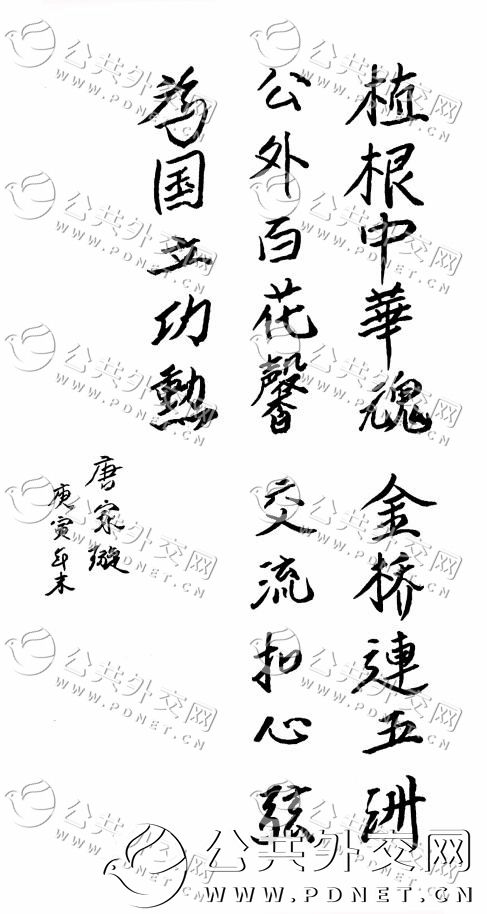 植根中華魂 金桥連五洲
公外百花馨 交流扣心弦
为国立功勳
唐家璇
庚寅年末
公共外交网
WWW.PDNET.CN